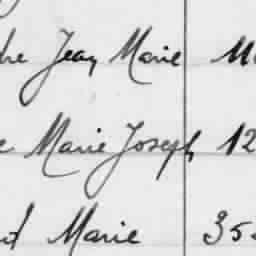 Jean Marie
Marie Joseph 12
Marie 35